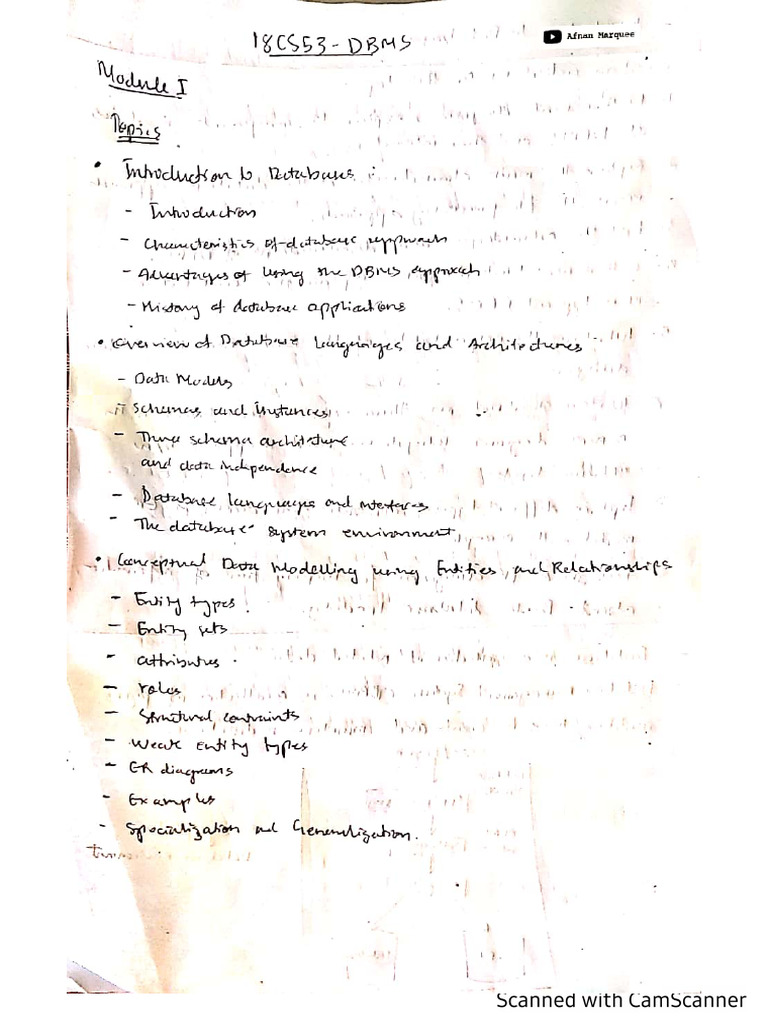 18CS53 - DBMS
Afnan Marquee
Module I
Topics
• Introduction to Databases :
- Introduction
- Characteristics of database approach
- Advantages of using the DBMS approach
- History of database applications
• Overview of Database Languages and Architectures
- Data Models
- Schemas and Instances
- Three schema architecture
and data independence
- Database languages and interfaces
- The database system environment
• Conceptual Data Modelling using Entities and Relationships
- Entity types
- Entity sets
- attributes
- roles
- Structural contraints
- Weak entity types
- ER diagrams
- Examples
- Specialization and Generalization.
Scanned with CamScanner